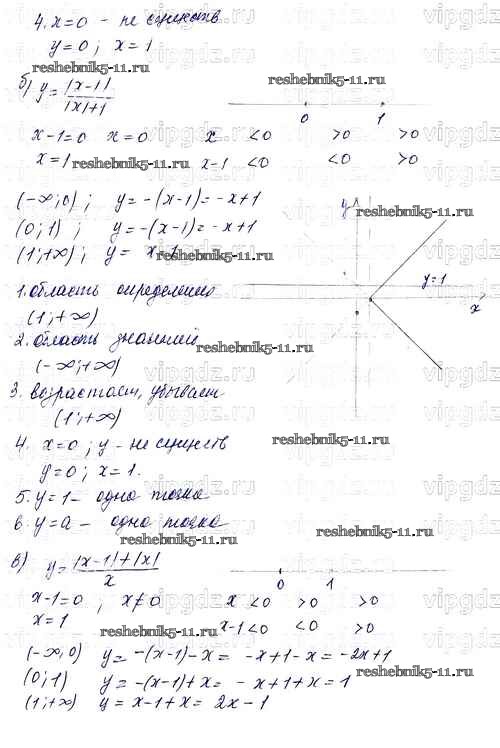 4. x=0 - не существ.
y=0; x=1
reshebnik5-11.ru
reshebnik5-11.ru
б) y=|x-1|/|x|+1
0 1
x-1=0 x=0 x <0 >0 >0
x=1 reshebnik5-11.ru x-1 <0 <0 >0
(-∞;0); y=-(x-1)=-x+1
y reshebnik5-11.ru
(0;1); y=-(x-1)=-x+1
(1;+∞); y= x-1
reshebnik5-11.ru
y=1
x
1. область определения
(1;+∞)
2. область значений
reshebnik5-11.ru
(-∞;+∞)
3. возрастает, убывает
(1;+∞)
4. x=0; y - не существ
reshebnik5-11.ru
y=0; x=1.
5. y=1 - одна точка
6. y=a - одна точка
reshebnik5-11.ru
reshebnik5-11.ru
в) y=|x-1|+|x|/x
0 1
x-1=0; x≠0 x <0 >0 >0
x=1 x-1 <0 <0 >0
reshebnik5-11.ru
(-∞,0) y=-(x-1)-x= -x+1-x=-2x+1
(0;1) y=-(x-1)+x= -x+1+x=1
reshebnik5-11.ru
(1;+∞) y=x-1+x= 2x-1
reshebnik5-11.ru
vipgdz.ru